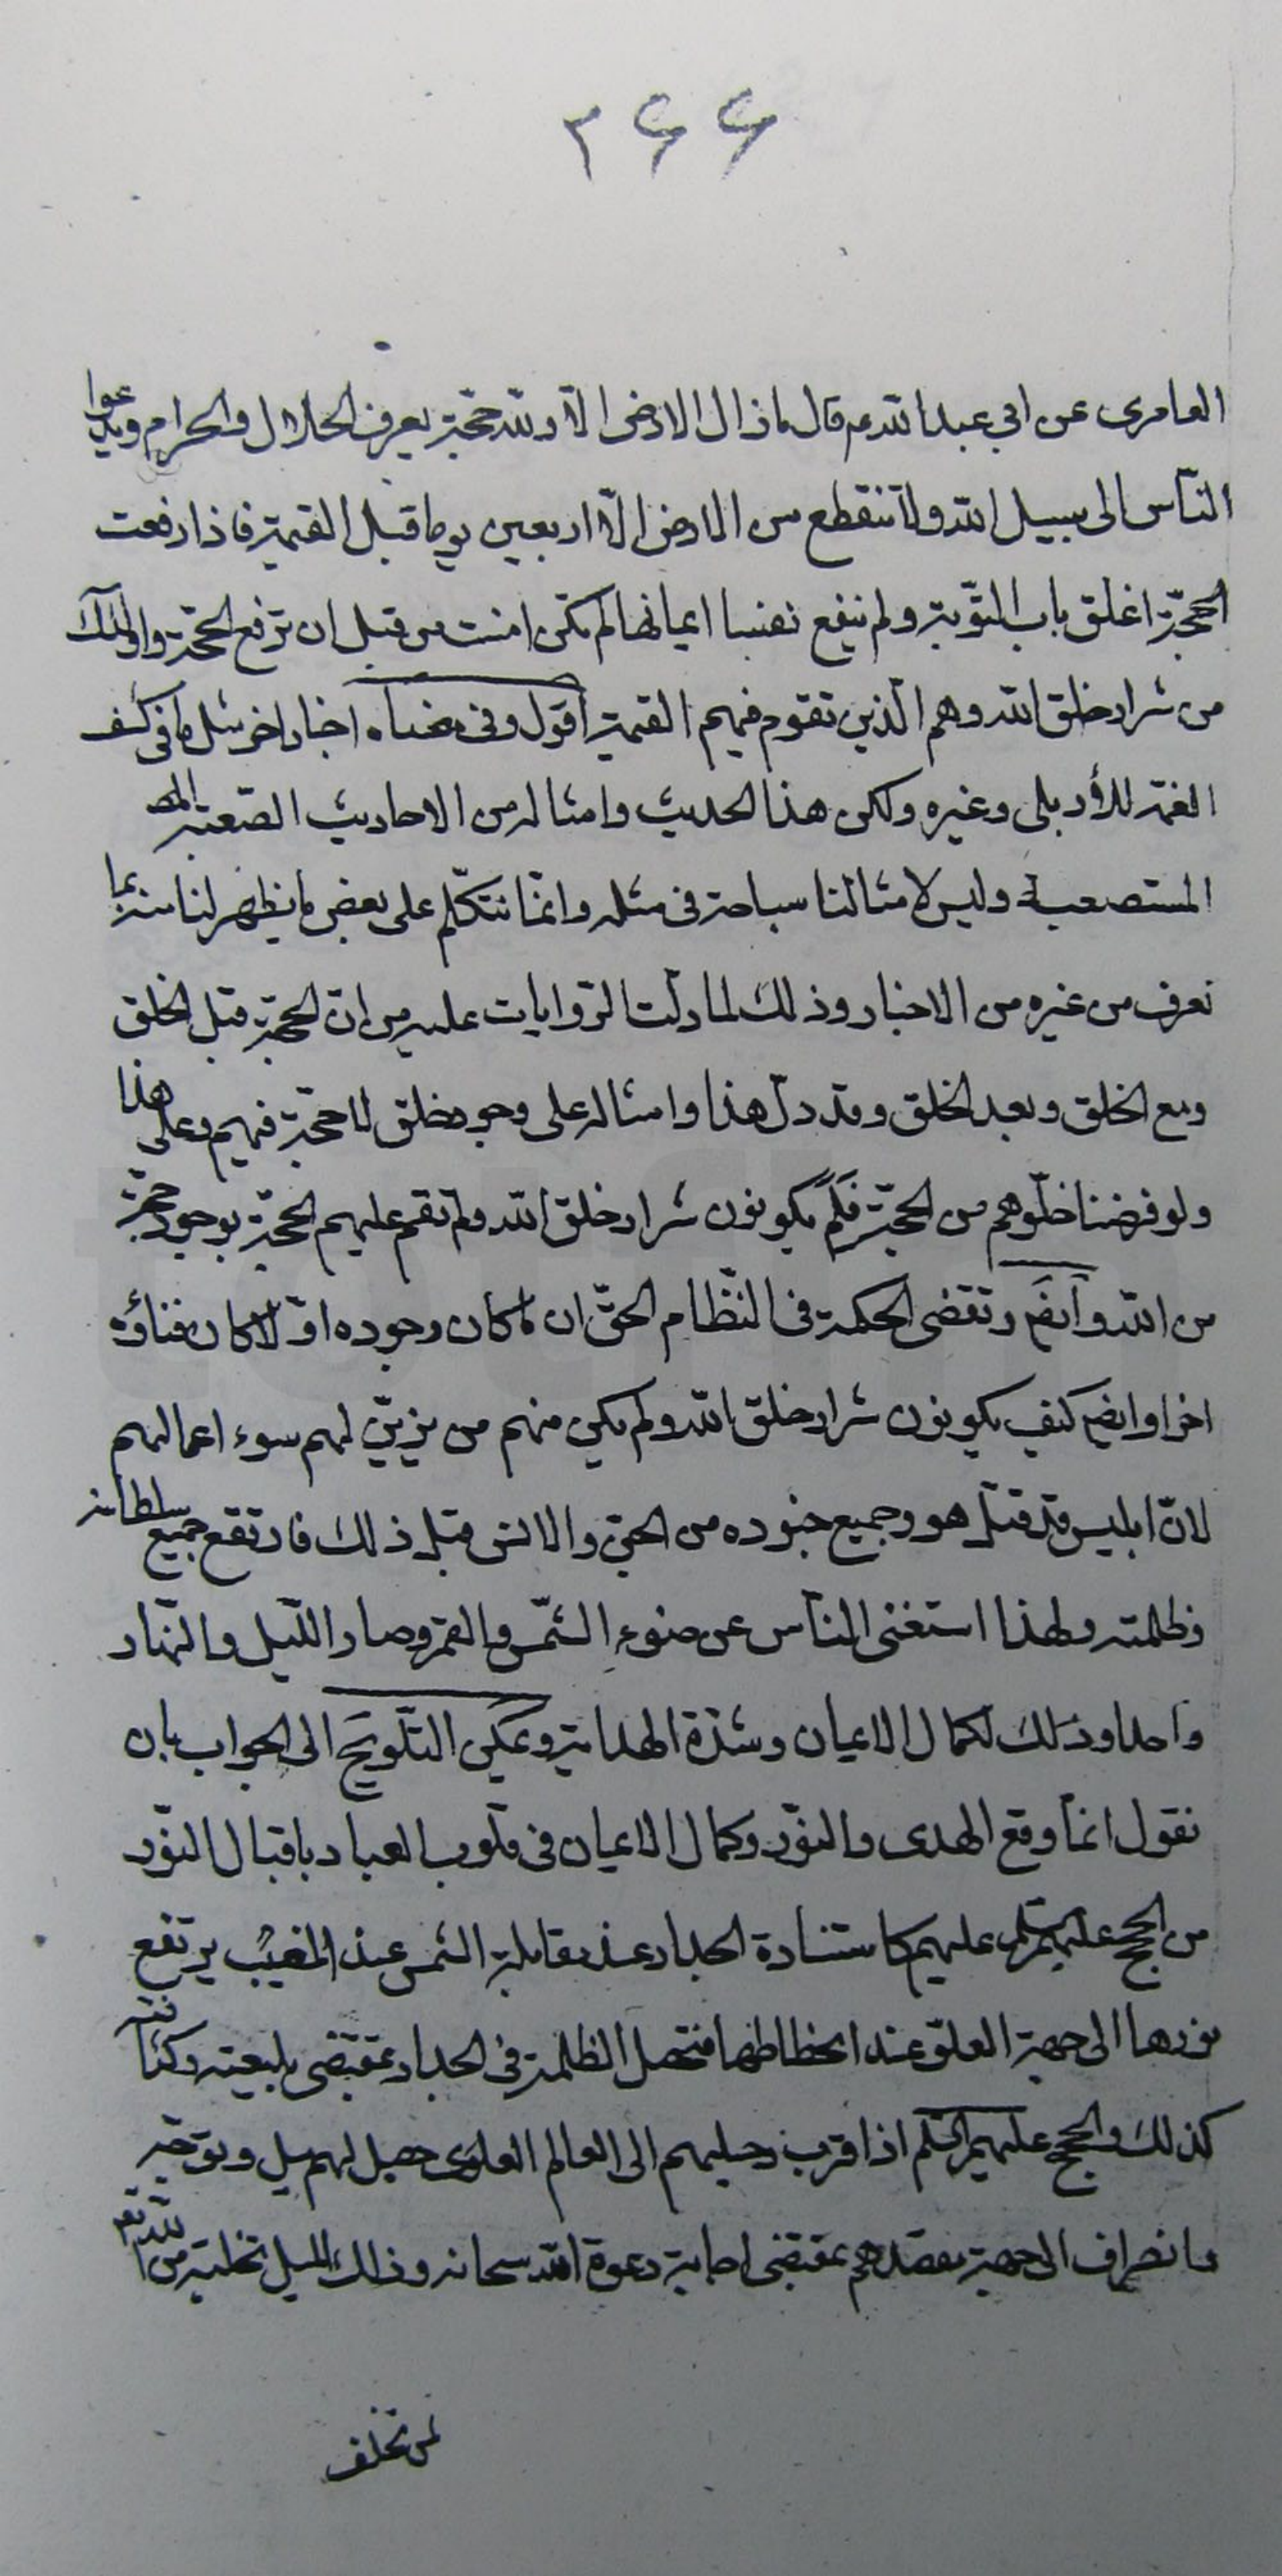 ۲۶۶
العامرى عن ابى عبدالله ع قال ماذال الارض الا ولله حجة يعرف الحلال والحرام ويدعوا
الناس الى سبيل الله ولا تنقطع من الارض الا اربعين يوما قبل القيمة فاذا رفعت
الحجة اغلق باب التوبة ولم ينفع نفسا ايمانها لم تكن امنت من قبل ان ترفع الحجة واولئك
من شرار خلق الله وهم الذين تقوم فيهم القيمة اقول وفى معناه اخبار اخر مثل ما فى كشف
الغمة للأردبلى وغيره ولكن هذا الحديث وامثاله من الاحاديث الصعبة
المستصعبة وليس لامثالنا سباحة فى مثله وانما نتكلم على بعض ما يظهر لنا منه بما
نعرف من غيره من الاخبار وذلك لما دلت الروايات عليه من ان الحجة قبل الخلق
ومع الخلق وبعد الخلق وقد دل هذا وامثاله على وجود خلق لا حجة فيهم وعلى هذا
ولو فرضنا خلوهم من الحجة فلم يكونون شرار خلق الله ولم تقم عليهم الحجة بوجود حجة
من الله وايض وتقضى الحكمة فى النظام الحق ان ما كان وجوده اولا كان فناؤه
اخرا وايض كيف يكونون شرار خلق الله ولم يكن منهم من يزين لهم سوء اعمالهم
لان ابليس قد قتل هو وجميع جنوده من الجن والانس قبل ذلك فارتفع جميع سلطانه
وظلمته ولهذا استغنى الناس عن ضوء الشمس والقمر وصار الليل والنهار
واحدا وذلك لكمال الايمان وشدة الهداية ويمكن التلويح الى الجواب بان
نقول انما وقع الهدى والنور وكمال الايمان فى قلوب العباد باقبال النور
من الحجج عليهم السلم عليهم كاستنارة الجدار عند مقابلة الشمس عند المغيب يرتفع
نورها الى جهة العلو عند انحطاطها فتحصل الظلمة فى الجدار بمقتضى
كذلك والحجج عليهم السلم اذا قرب رحيلهم الى العالم العلوى حصل لهم ميل وتوجه
وانصراف الى جهة مقصدهم بمقتضى اجابة دعوة الله سبحانه وذلك الميل تخلية من الله تع
لمن تخلف